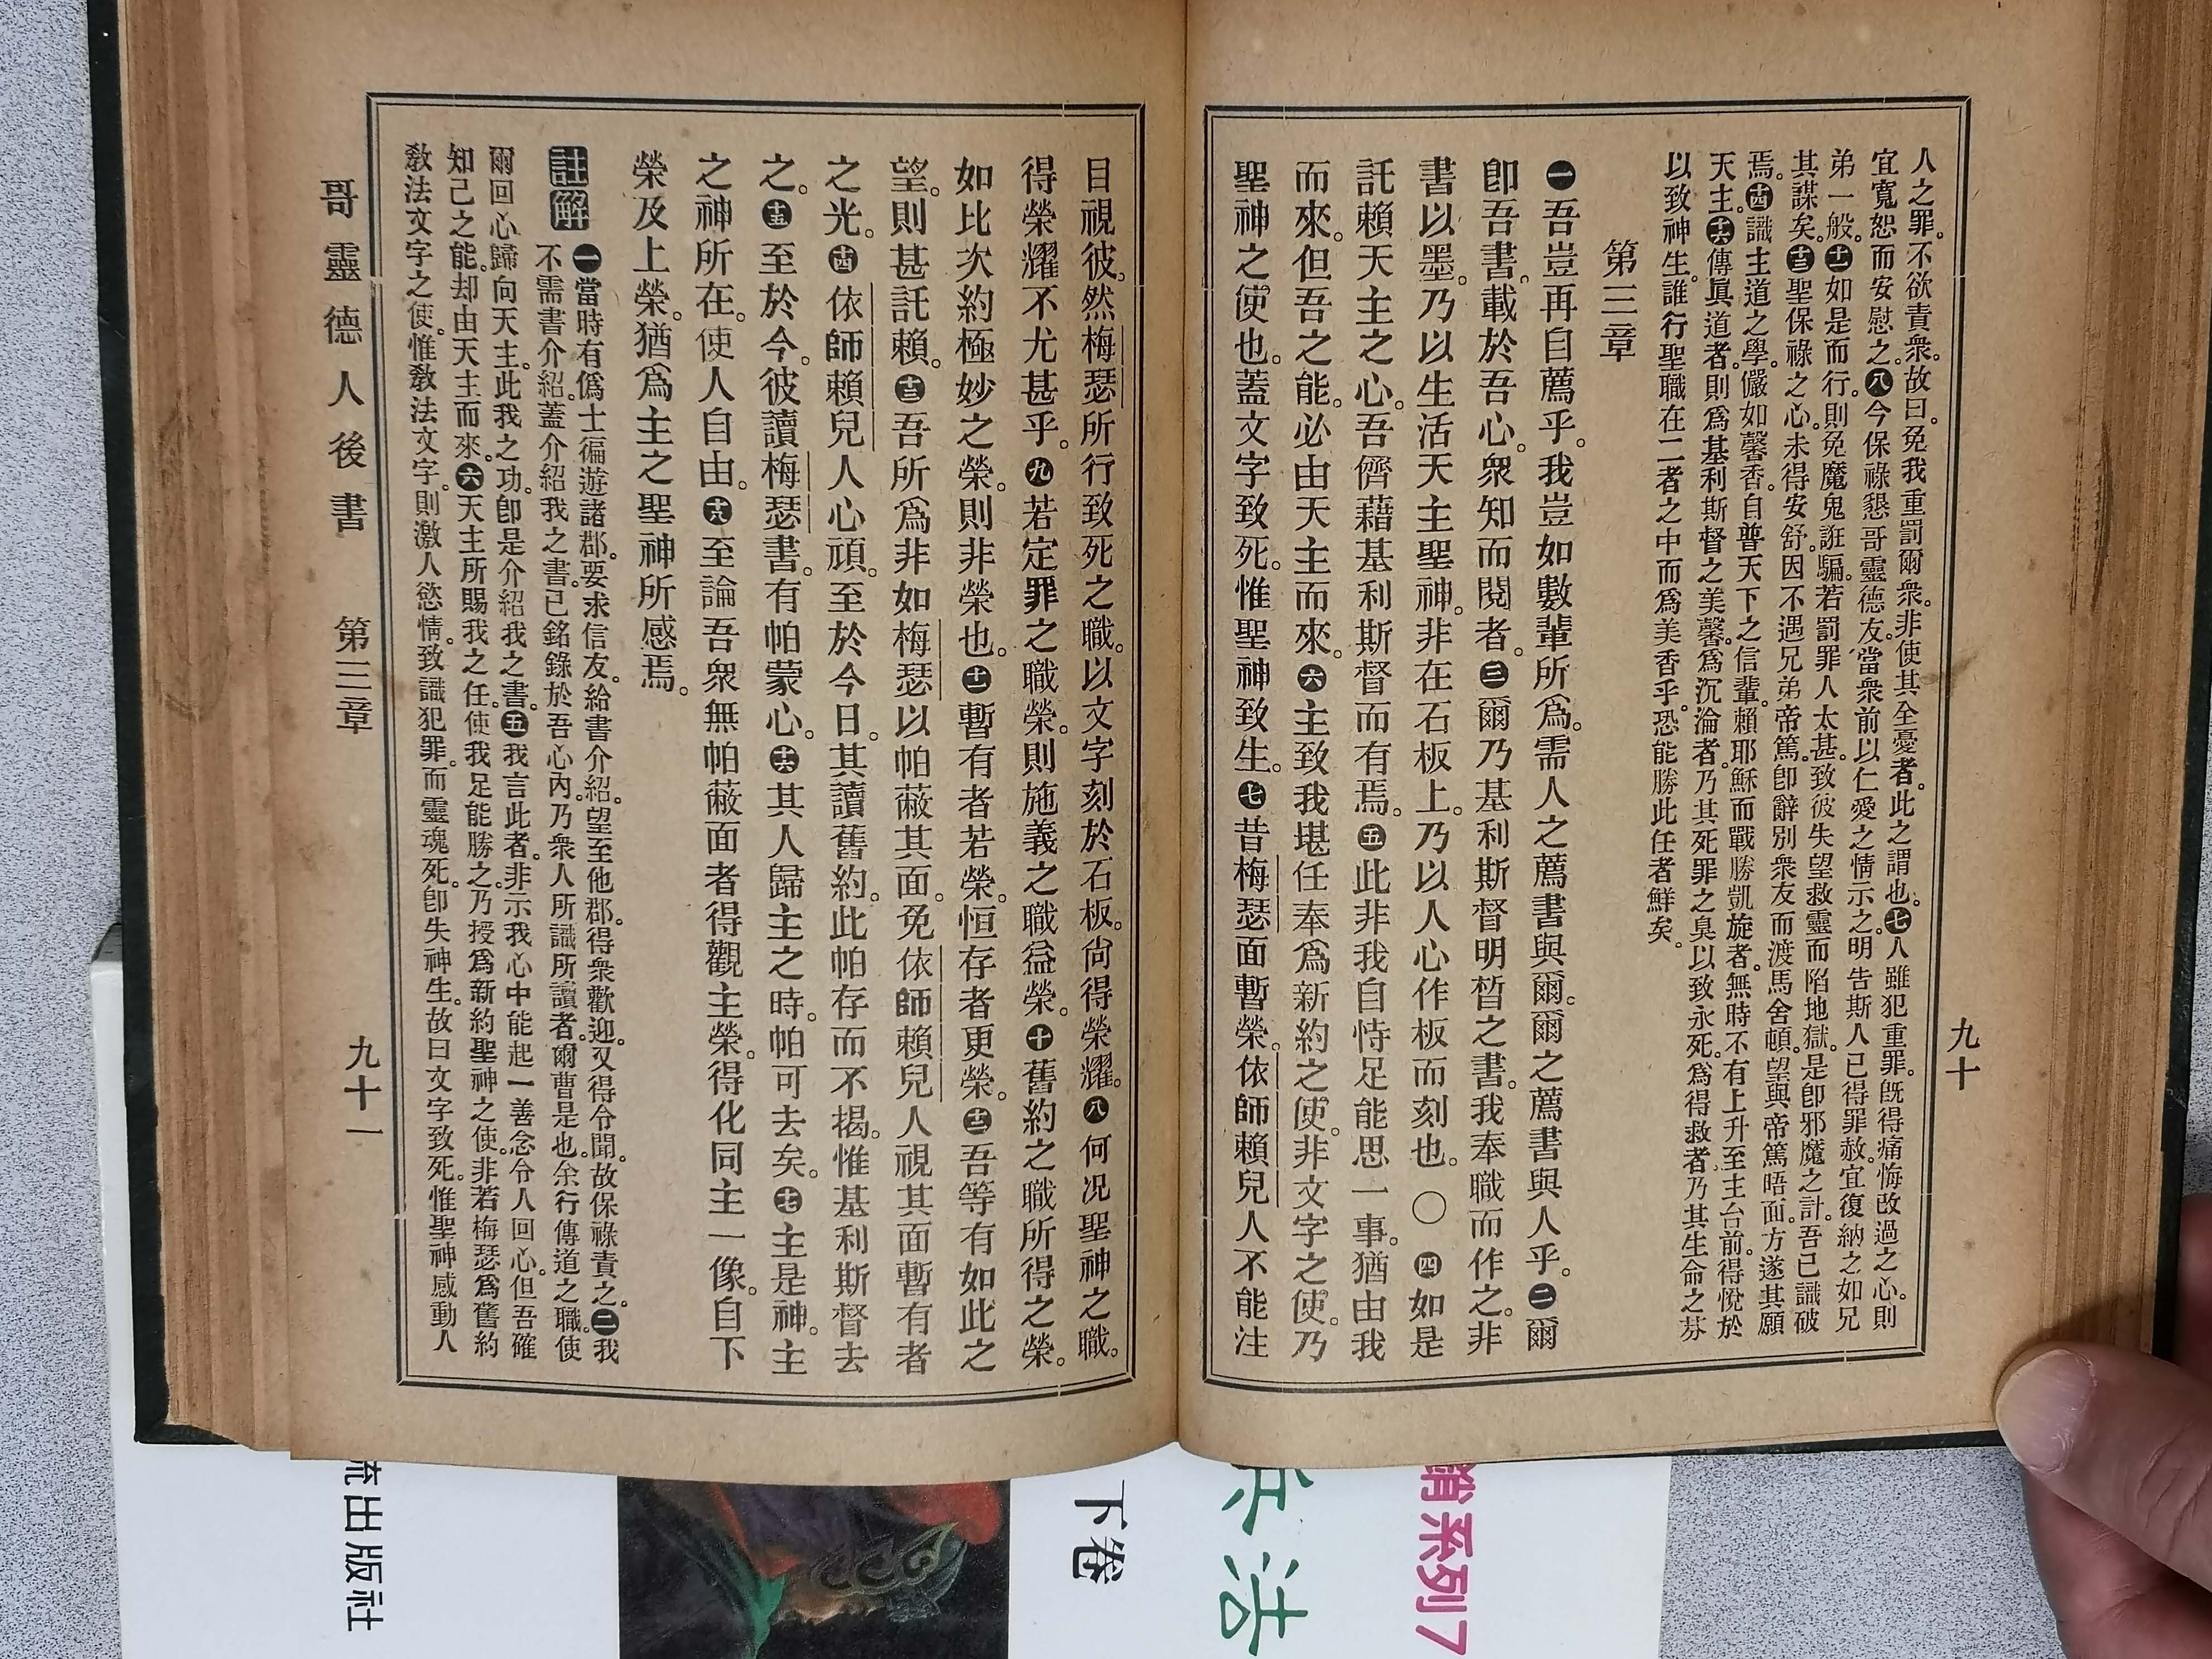 人之罪。不欲責衆。故曰。免我重罰爾衆。非使其全憂者。此之謂也。七人雖犯重罪。旣得痛悔改過之心。則
宜寬恕而安慰之。八今保祿懇哥靈德友。當衆前以仁愛之情示之。明告斯人已得罪赦。宜復納之如兄
弟一般。十一如是而行。則免魔鬼誑騙。若罰罪人太甚。致彼失望救靈而陷地獄。是卽邪魔之計。吾已識破
其謀矣。十三聖保祿之心。未得安舒。因不遇兄弟帝篤。卽辭別衆友而渡馬舍頓。望與帝篤晤面。方遂其願
焉。十四識主道之學。儼如馨香。自普天下之信輩。賴耶穌而戰勝凱旋者。無時不有上升至主台前。得悅於
天主。十六傳眞道者。則爲基利斯督之美馨。爲沉淪者。乃其死罪之臭。以致永死。爲得救者。乃其生命之芬
以致神生。誰行聖職在二者之中而爲美香乎。恐能勝此任者鮮矣。
第三章
一吾豈再自薦乎。我豈如數輩所爲。需人之薦書與爾。爾之薦書與人乎。二爾
卽吾書。載於吾心。衆知而閱者。三爾乃基利斯督明晳之書。我奉職而作之。非
書以墨。乃以生活天主聖神。非在石板上。乃以人心作板而刻也。〇四如是
託賴天主之心。吾儕藉基利斯督而有焉。五此非我自恃足能思一事。猶由我
而來。但吾之能。必由天主而來。六主致我堪任奉爲新約之使。非文字之使。乃
聖神之使也。蓋文字致死。惟聖神致生。七昔梅瑟面暫榮。依師賴兒人不能注
九十
目視彼。然梅瑟所行致死之職。以文字刻於石板。尙得榮耀。八何况聖神之職。
得榮耀不尤甚乎。九若定罪之職榮。則施義之職益榮。十舊約之職所得之榮。
如比次約極妙之榮。則非榮也。十一暫有者若榮。恒存者更榮。十二吾等有如此之
望。則甚託賴。十三吾所爲非如梅瑟以帕蔽其面。免依師賴兒人視其面暫有者
之光。十四依師賴兒人心頑。至於今日。其讀舊約。此帕存而不揭。惟基利斯督去
之。十五至於今。彼讀梅瑟書。有帕蒙心。十六其人歸主之時。帕可去矣。十七主是神。主
之神所在。使人自由。十八至論吾衆無帕蔽面者得觀主榮。得化同主一像。自下
榮及上榮。猶爲主之聖神所感焉。
註解
一當時有僞士徧遊諸郡。要求信友。給書介紹。望至他郡。得衆歡迎。又得令聞。故保祿責之。二我
不需書介紹。蓋介紹我之書。已銘錄於吾心內。乃衆人所識所讀者。爾曹是也。余行傳道之職。使
爾回心歸向天主。此我之功。卽是介紹我之書。五我言此者。非示我心中能起一善念令人回心。但吾確
知己之能。却由天主而來。六天主所賜我之任。使我足能勝之。乃授爲新約聖神之使。非若梅瑟爲舊約
敎法文字之使。惟敎法文字。則激人慾情。致識犯罪。而靈魂死。卽失神生。故曰文字致死。惟聖神感動人
哥靈德人後書 第三章 九十一
流出版社
下卷
兵法
銷系列7